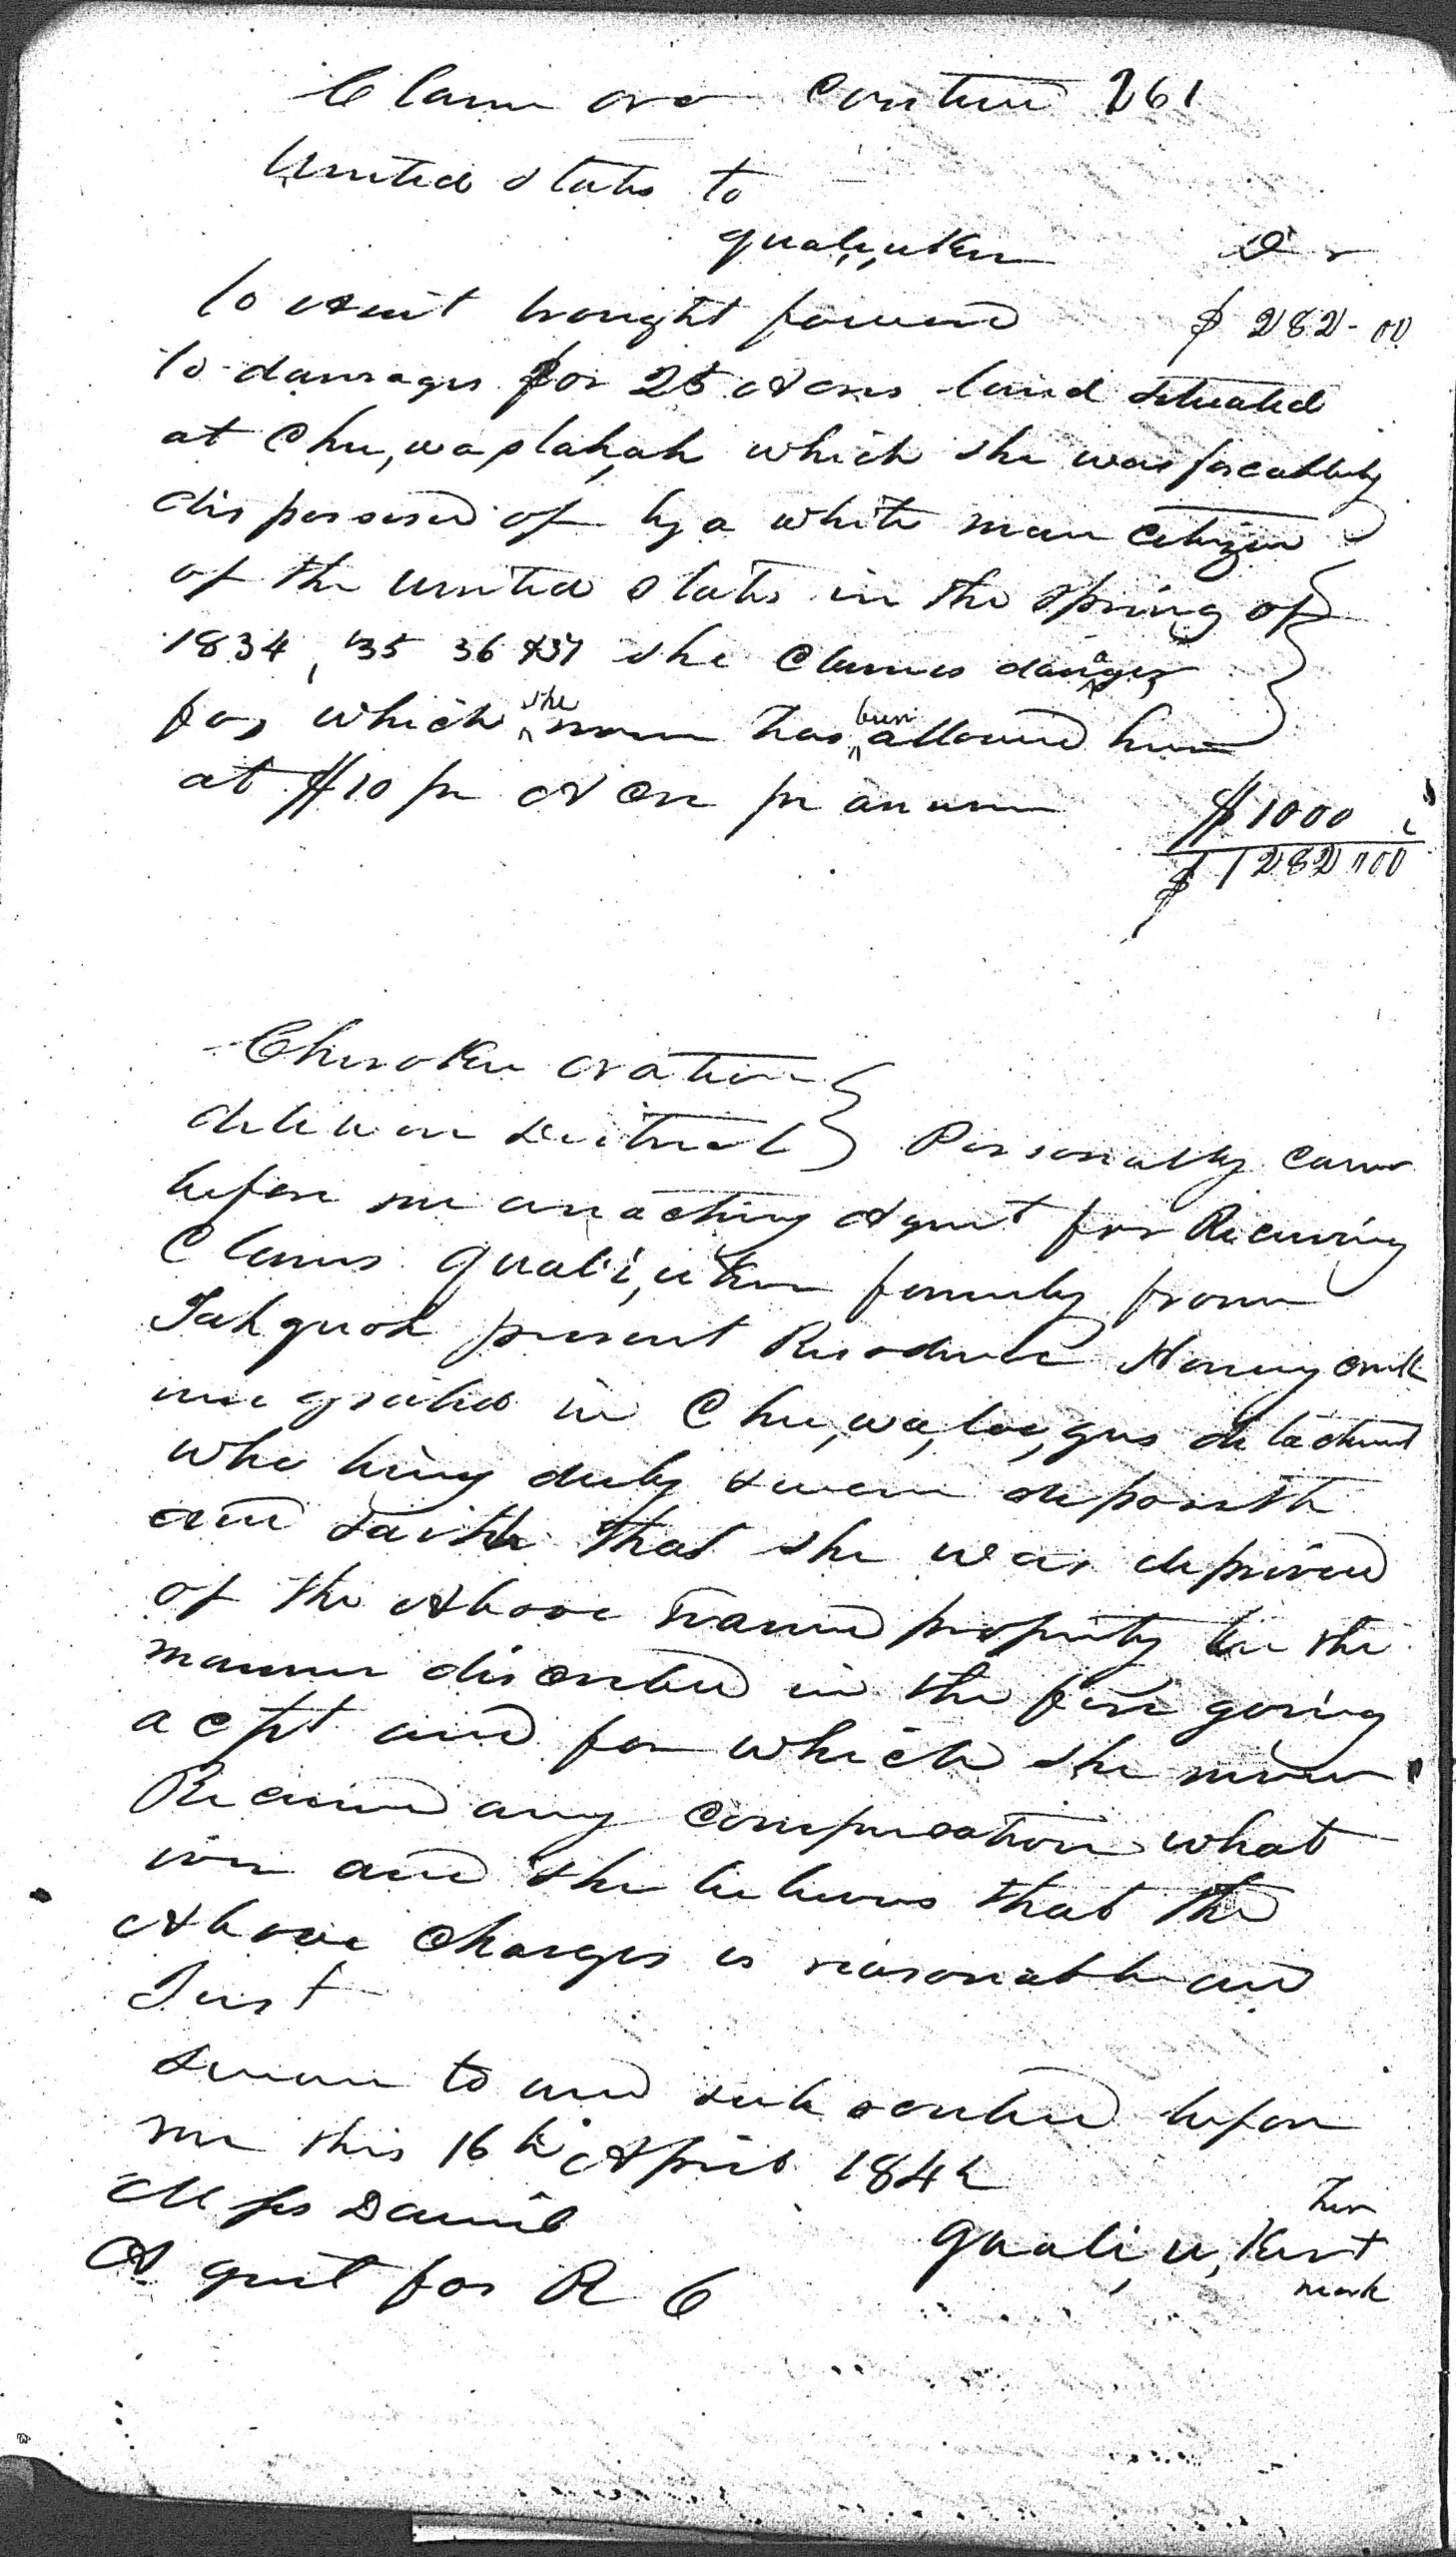 Claim No Continued 261
United States to
Quali,u,ken Dr
To Amt brought forward $ 282-00
To damages for 25 Acres land situated
at Chu,wastah,ah which she was forcablely
dispossesed of by a white man Citizen
of the United States in the Spring of
1834, 35 36 & 37 she Claims damages
for which she never has been allowed her
at $10 pr Acre pr anum $1000
$1282"00
Cherokee Nation
delaware district Personally came
before me an acting Agent for Receiving
Claims Quali,u,ken formerly from
Tahquoh present Residence Honey Creek
imegrated in Chu,wa,loo,gus detachment
who being duly sworn deposeth
and saith that she was deprived
of the Above named property in the
manner discribed in the fore going
acpt and for which she never
Received any compensation what
iver and she believes that the
Above Charges is reasonable and
Just
Sworn to and subscribed before
me this 16th April 1842
Moses Daniel Her
Agent for R C Quali,u,ken +
mark